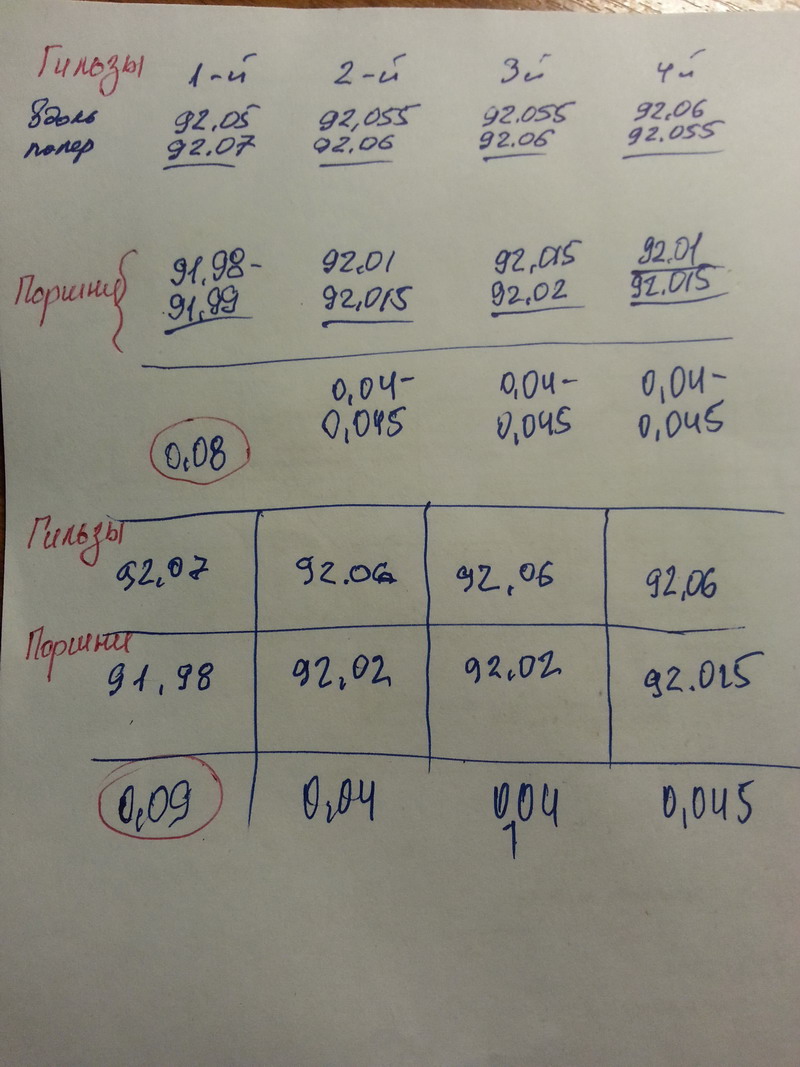 Гильзы 1-й 2-й 3й 4й
вдоль 92,05 92,055 92.055 92,06
попер 92.07 92.06 92.06 92.055
91,98- 92.01 92,015 92.01
Поршни 91,99 92,015 92.02 92.015
0,04- 0,04- 0,04-
0,08 0,045 0,045 0,045
Гильзы
92,07 92.06 92,06 92,06
Поршни
91,98 92,02 92,02 92.015
0,09 0,04 0,04 0,045
1